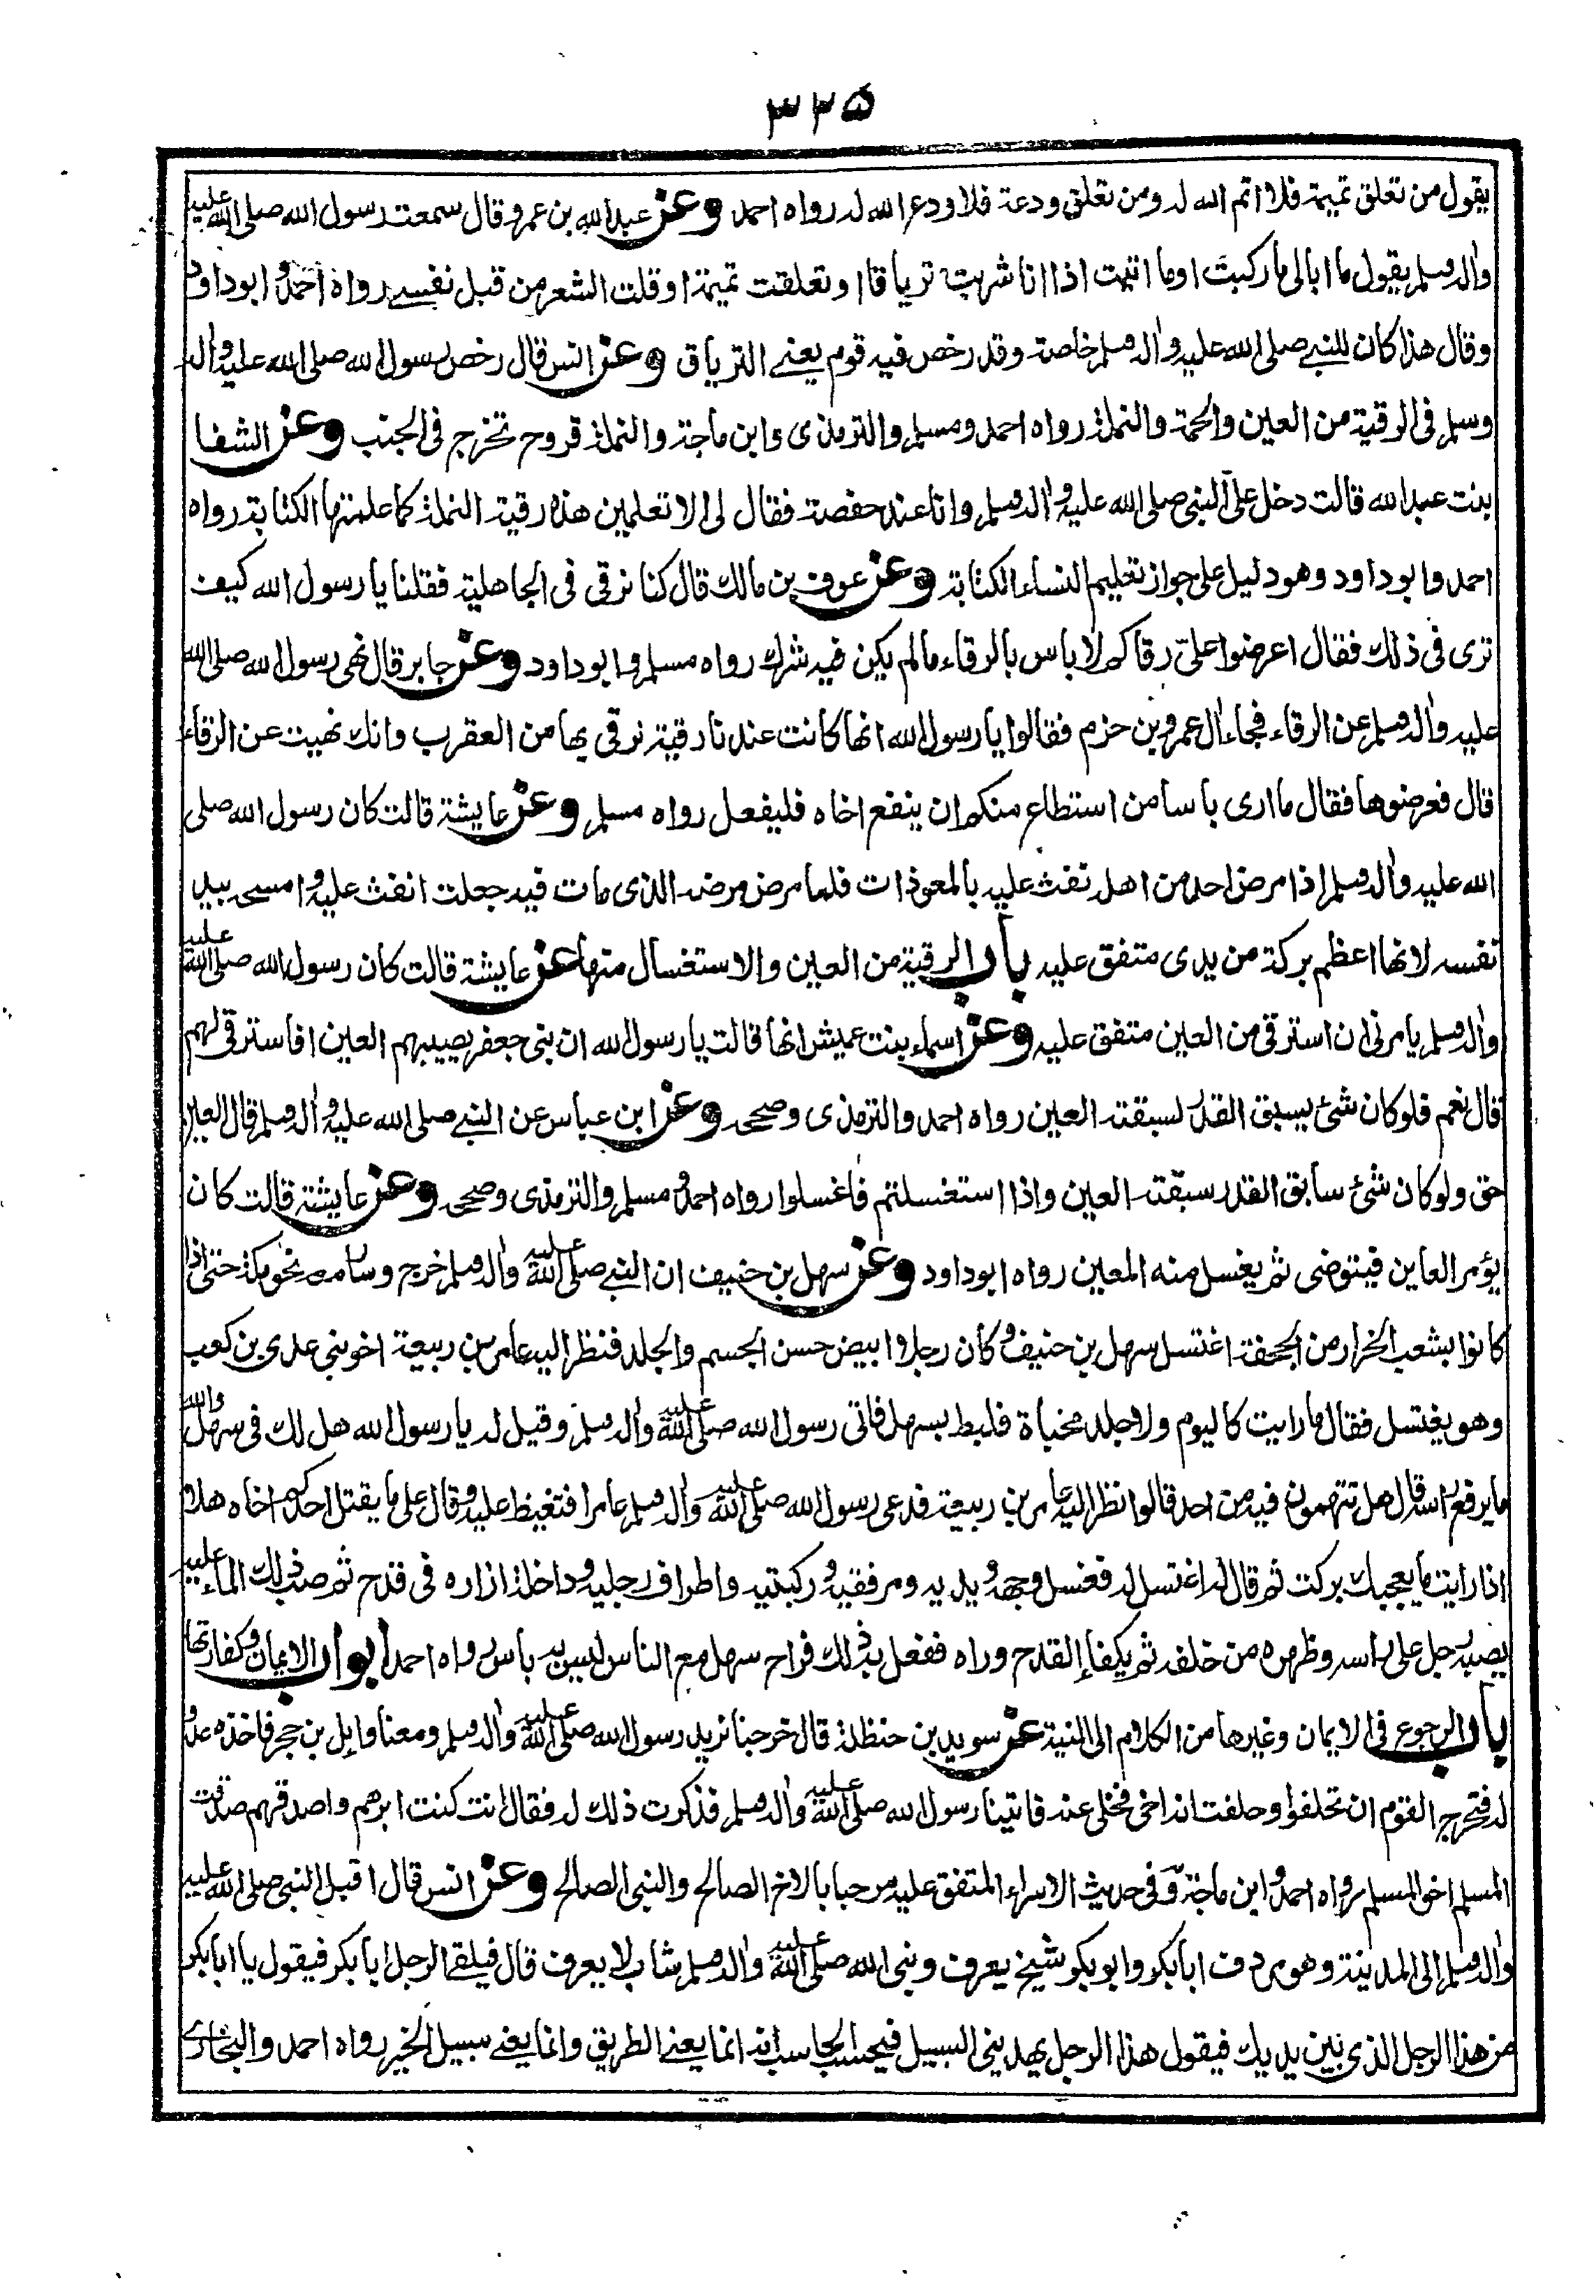 ٣٢٥
يقول من تعلق تميمة فلا اتم الله له ومن تعلق ودعة فلا ودع الله له رواه احمد وعن عبدالله بن عمرو قال سمعت رسول الله صلى الله عليه
واله وسلم يقول ما ابالى ما ركبت اوما اتيت اذا انا شربت ترياقا او تعلقت تميمة او قلت الشعر من قبل نفسي رواه احمد و ابوداود
وقال هذا كان للنبي صلى الله عليه واله وسلم خاصة وقد رخص فيه قوم يعني الترياق وعن انس قال رخص رسول الله صلى الله عليه واله
وسلم فى الرقية من العين والحمة والنملة رواه احمد ومسلم والترمذى وابن ماجة والنملة قروح تخرج فى الجنب وعن الشفا
بنت عبد الله قالت دخل علىّ النبى صلى الله عليه واله وسلم وانا عند حفصة فقال لى الا تعلمين هذه رقية النملة كما علمتها الكتابة رواه
احمد وابوداود وهو دليل على جواز تعليم النساء الكتابة وعن عوف بن مالك قال كنا نرقى فى الجاهلية فقلنا يا رسول الله كيف
ترى فى ذلك فقال اعرضوا علىّ رقاكم لا باس بالرقاء مالم يكن فيه شرك رواه مسلم وابوداود وعن جابر قال نهى رسول الله صلى الله
عليه واله وسلم عن الرقاء فجاء ال عمرو بن حزم فقالوا يا رسول الله انها كانت عندنا رقية نرقى بها من العقرب وانك نهيت عن الرقاء
قال فعرضوها فقال ما ارى باسا من استطاع منكم ان ينفع اخاه فليفعل رواه مسلم وعن عايشة قالت كان رسول الله صلى
الله عليه واله وسلم اذا مرض احد من اهله نفث عليه بالمعوذات فلما مرض مرضه الذى مات فيه جعلت انفث عليه و امسحه بيد
نفسه لانها اعظم بركة من يدى متفق عليه باب الرقية من العين والاستغسال منها عن عايشة قالت كان رسول الله صلى الله عليه
واله وسلم يامرنى ان استرقى من العين متفق عليه وعن اسماء بنت عميش انها قالت يا رسول الله ان بنى جعفر يصيبهم العين افاسترقى لهم
قال نعم فلو كان شئ يسبق القدر لسبقته العين رواه احمد والترمذى وصححه وعن ابن عباس عن النبي صلى الله عليه واله وسلم قال العين
حق ولو كان شئ سابق القدر سبقته العين واذا استغسلتم فاغسلوا رواه احمد و مسلم والترمذى وصححه وعن عايشة قالت كان
يؤمر العاين فيتوضى ثم يغسل منه المعين رواه ابوداود وعن سهل بن حنيف ان النبي صلى الله عليه واله وسلم خرج وسار معه نحو مكة حتى اذا
كانوا بشعب الخرار من الجحفة اغتسل سهل بن حنيف و كان رجلا ابيض حسن الجسم والجلد فنظر اليه عامر بن ربيعة اخو بنى عدى بن كعب
وهو يغتسل فقال ما رايت كاليوم ولا جلد مخباة فلبط بسهل فاتى رسول الله صلى الله عليه واله وسلم وقيل له يا رسول الله هل لك فى سهل والله
ما يرفع راسه قال هل تتهمون فيه من احد قالوا نظر اليه عامر بن ربيعة فدعى رسول الله صلى الله عليه واله وسلم عامرا فتغيظ عليه وقال على ما يقتل احدكم اخاه هلا
اذا رايت ما يعجبك بركت ثم قال له اغتسل له فغسل وجهه و يديه ومرفقيه و ركبتيه واطراف رجليه وداخلة ازاره فى قدح ثم صب ذلك الماء عليه
يصبه رجل على راسه وظهره من خلفه ثم يكفأ القدح وراه ففعل به ذلك فراح سهل مع الناس ليس به باس رواه احمد ابواب الايمان وكفارتها
باب الرجوع فى الايمان وغيرها من الكلام الى النية عن سويد بن حنظلة قال خرجنا نريد رسول الله صلى الله عليه واله وسلم ومعنا وايل بن حجر فاخذه عدو
له فتحرج القوم ان تحلفوا وحلفت انه اخى فخلى عنه فاتينا رسول الله صلى الله عليه واله وسلم فذكرت ذلك له فقال انت كنت ابرهم واصدقهم صدقت
المسلم اخو المسلم رواه احمد و ابن ماجة وفى حديث الاسراء المتفق عليه مرحبا بالاخ الصالح والنبى الصالح وعن انس قال اقبل النبى صلى الله عليه
واله وسلم الى المدينة وهو مردف ابابكر وابوبكر شيخ يعرف ونبى الله صلى الله عليه واله وسلم شاب لا يعرف قال فيلقى الرجل ابابكر فيقول يا ابابكر
من هذا الرجل الذى بين يديك فيقول هذا الرجل يهدينى السبيل فيحسب الحاسب انه انما يعني الطريق وانما يعني سبيل الخير رواه احمد والبخارى